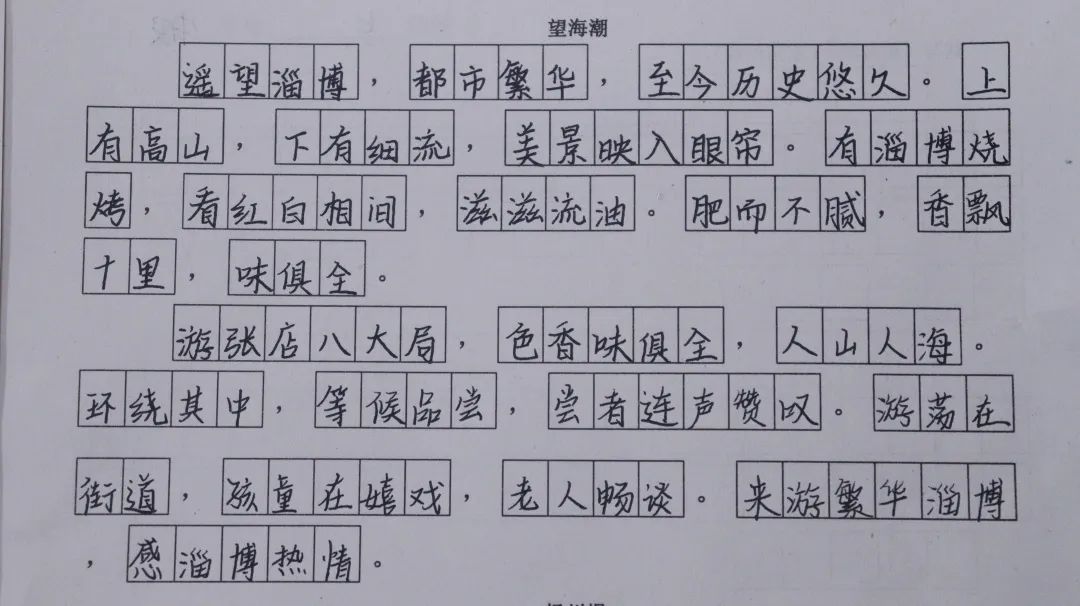 望海潮
遥望淄博，都市繁华，至今历史悠久。上
有高山，下有细流，美景映入眼帘。有淄博烧
烤，看红白相间，滋滋流油。肥而不腻，香飘
十里，味俱全。
游张店八大局，色香味俱全，人山人海。
环绕其中，等候品尝，尝者连声赞叹。游荡在
街道，孩童在嬉戏，老人畅谈。来游繁华淄博
，感淄博热情。